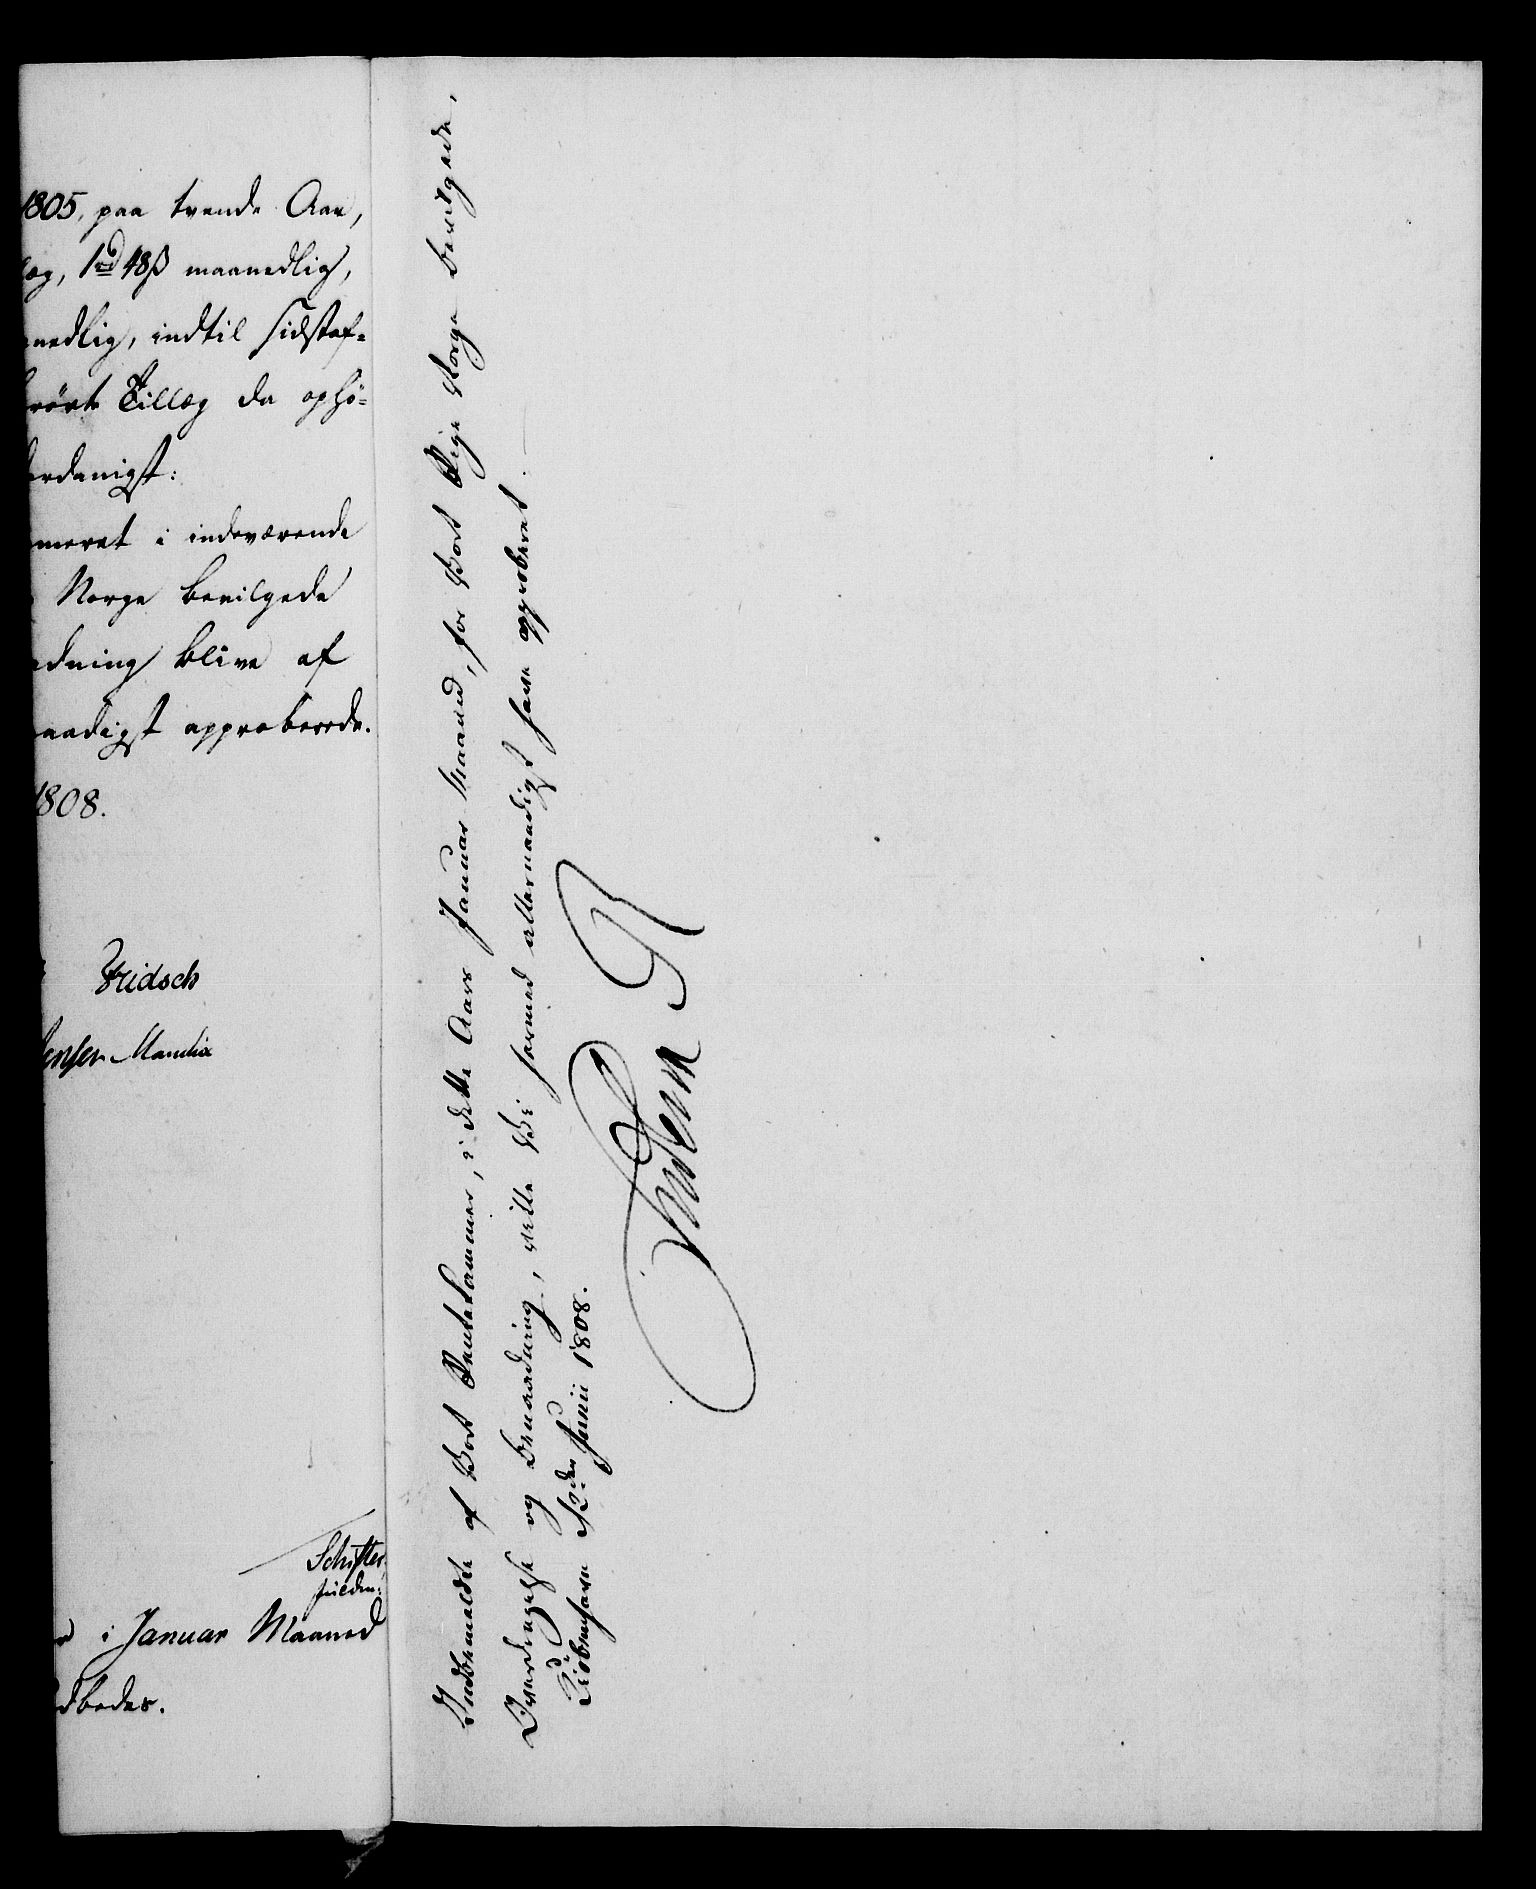 1805, paa tvende Aar,
læg, 1 rd 48 ß maanedlig,
nedlig, indtil sidstaf-
rørte Tillæg da ophö-
erdanigst:
meret i indeværende
Norge bevilgede
adning blive af
aadigst approberede.
1808.
Fridsch
Jensen Mandix
Schifter
fuldm:
i Januar Maaned
dbedes.
Indbemeldte af Vort Rentekammer, i dette Aars Januar Maaned, for Vort Rige Norge bevilgede,
Overdragelse og Benaadning, ville Vi hermed allernaadigst have approberet.
Kiöbenhavn 12den Junii 1808.
Frederik R